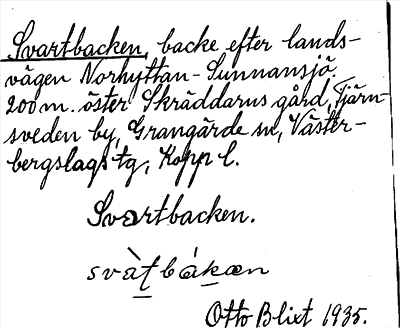 Svartbacken, backe efter lands-
vägen Norhyttan - Sunnansjö.
200 m. öster Skräddarns gård, Tjärn-
sveden by, Grangärde sn, Väster-
bergslags tg, Kopp l.
Svartbacken.
svàt bákæn
Otto Blixt 1935.